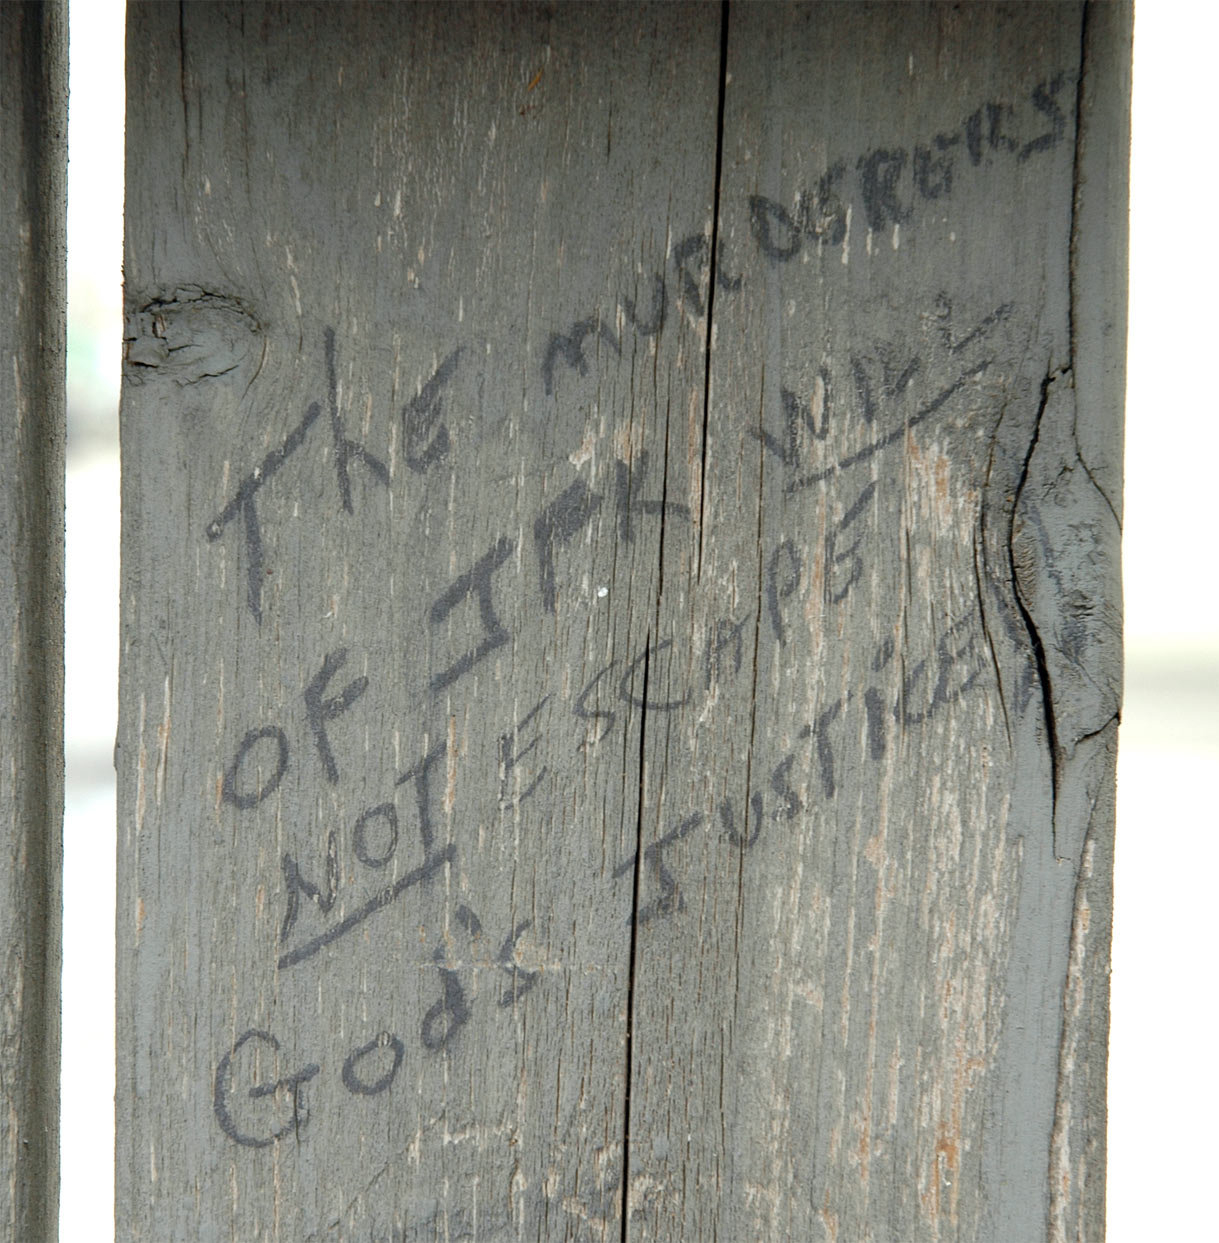 The MURDERERS
OF JFK WILL
NOT ESCAPE
God's JUSTICE!